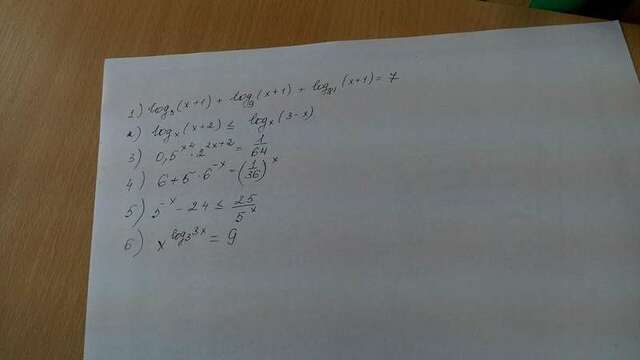 1) log₃(x+1) + log₉(x+1) + log₈₁(x+1) = 7
2) logₓ(x+2) ≤ logₓ(3-x)
3) 0,5^x⁴ · 2^2x+2 = 1/64
4) 6+5·6^-x = (1/36)^x
5) 5^x - 24 ≤ 25/5^x
6) x^log₃3x = 9